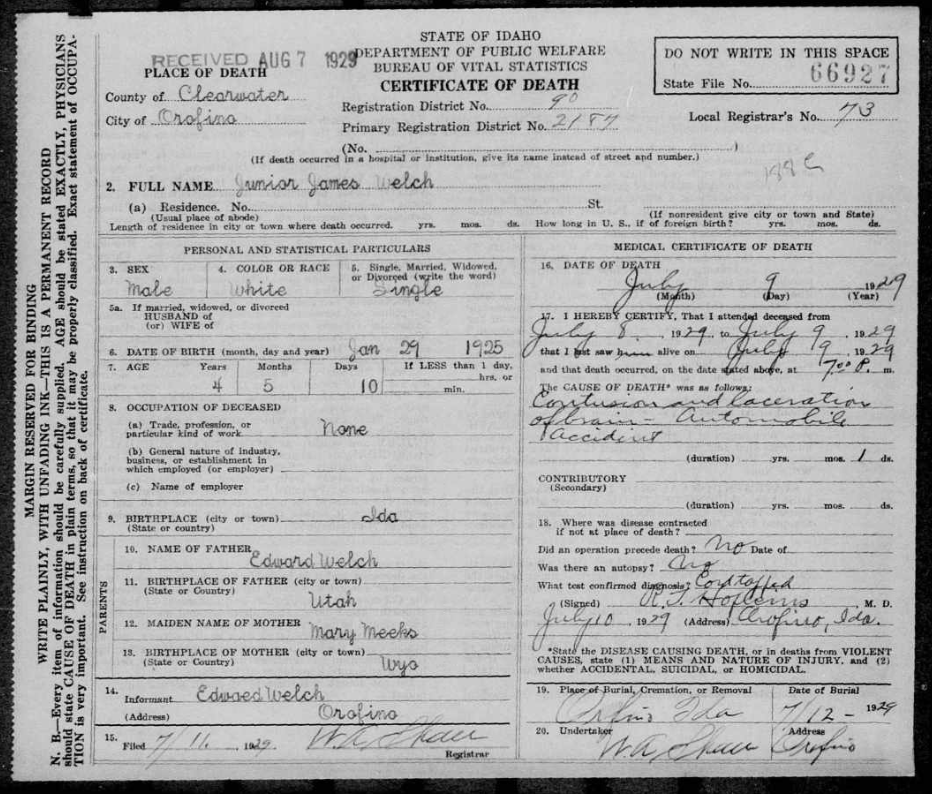 STATE OF IDAHO
DEPARTMENT OF PUBLIC WELFARE
BUREAU OF VITAL STATISTICS
CERTIFICATE OF DEATH
RECEIVED AUG 7 1929
PLACE OF DEATH
County of Clearwater
City of Orofino
Registration District No. 90
Primary Registration District No. 2187
(No. )
(If death occurred in a hospital or institution, give its name instead of street and number.)
DO NOT WRITE IN THIS SPACE
State File No. 66927
Local Registrar's No. 73
188 c
2. FULL NAME Junior James Welch
(a) Residence. No. St.
(Usual place of abode) (If nonresident give city or town and State)
Length of residence in city or town where death occurred. yrs. mos. ds. How long in U. S., if of foreign birth? yrs. mos. ds.
PERSONAL AND STATISTICAL PARTICULARS
3. SEX
Male
4. COLOR OR RACE
White
5. Single, Married, Widowed,
or Divorced (write the word)
Single
5a. If married, widowed, or divorced
HUSBAND of
(or) WIFE of
6. DATE OF BIRTH (month, day and year) Jan 29 1925
7. AGE Years Months Days If LESS than 1 day,
hrs. or
min.
4 5 10
8. OCCUPATION OF DECEASED
(a) Trade, profession, or
particular kind of work None
(b) General nature of industry,
business, or establishment in
which employed (or employer)
(c) Name of employer
9. BIRTHPLACE (city or town) Ida
(State or country)
PARENTS
10. NAME OF FATHER
Edward Welch
11. BIRTHPLACE OF FATHER (city or town)
(State or Country)
Utah
12. MAIDEN NAME OF MOTHER
Mary Meeks
13. BIRTHPLACE OF MOTHER (city or town)
(State or Country)
Wyo
14.
Informant Edward Welch
(Address) Orofino
15.
Filed 7/11, 1929. W.A. Shaw
Registrar
MEDICAL CERTIFICATE OF DEATH
16. DATE OF DEATH
July 9 1929
(Month) (Day) (Year)
17. I HEREBY CERTIFY, That I attended deceased from
July 8, 1929, to July 9, 1929
that I last saw him alive on July 9, 1929
and that death occurred, on the date stated above, at 7:00 P. m.
The CAUSE OF DEATH* was as follows:
Contusion and laceration
of brain - Automobile
Accident
(duration) yrs. mos. 1 ds.
CONTRIBUTORY
(Secondary)
(duration) yrs. mos. ds.
18. Where was disease contracted
if not at place of death?
Did an operation precede death? No Date of
Was there an autopsy? No
What test confirmed diagnosis?
(Signed) M. D.
July 10, 1929 (Address) Orofino, Ida.
*State the DISEASE CAUSING DEATH, or in deaths from VIOLENT
CAUSES, state (1) MEANS AND NATURE OF INJURY, and (2)
whether ACCIDENTAL, SUICIDAL, or HOMICIDAL.
19. Place of Burial, Cremation, or Removal Date of Burial
Orofino Ida 7/12 - 1929
20. Undertaker Address
W.A. Shaw Orofino
MARGIN RESERVED FOR BINDING
WRITE PLAINLY, WITH UNFADING INK—THIS IS A PERMANENT RECORD
N. B.—Every item of information should be carefully supplied. AGE should be stated EXACTLY, PHYSICIANS
should state CAUSE OF DEATH in plain terms, so that it may be properly classified. Exact statement of OCCUPA-
TION is very important. See instruction on back of certificate.